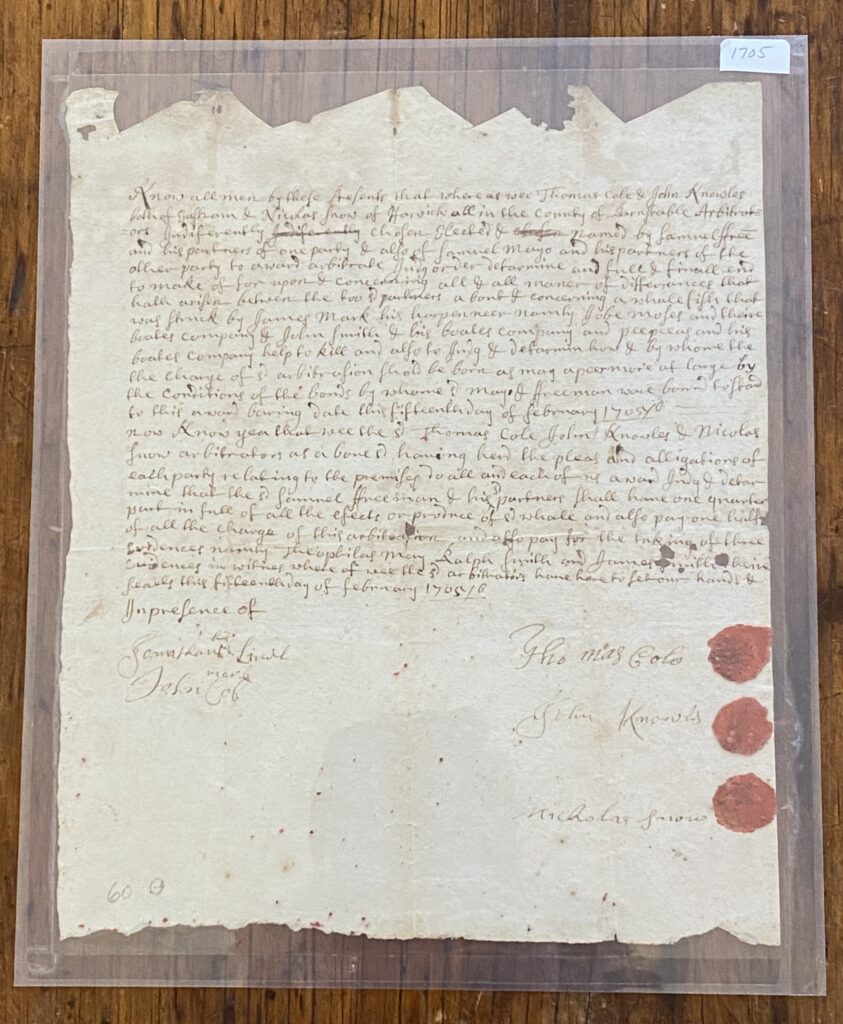 1705
Know all men by these presents that where as wee Thomas Cole & John Knowles
both of Eastham & Nicolas Snow of Harwich all in the County of Barnstable Arbitrat
=ors Indiferently Indiferently chosen Elected & Named by Samuel ffree
and his partners of one party & also of Samuel Mayo and his partners of the
other party to award arbitrate Judg order determine and full & finall end
to make of for upon & concerning all & all maner of differances that
hath arisen betwen the two sd partners a bout & concerning a whale fish that
was struck by James Mark his harpenneer namly Jobe Moses and theire
boates company & John Smith & his boates company and peepleas and his
boates Company help to kill and also to Judg & determin how & by whome the
the charge of sd arbitrasion shold be born as may apeer more at large by
the Conditions of the bonds by whome sd Mayo & ffreeman ware bound to stand
to this award baring date this fifteenth day of february 1705/6
now Know yea that wee the sd Thomas Cole John Knowles & Nicolas
Snow arbitrators as a bove sd having herd the pleas and alligations of
each party relating to the premises do all and each of us award Judg & deter
mine that the sd Samuel ffreeman & his partners shall have one quarter
part in full of all the efects or produce of sd whale and also pay one half
of all the charge of this arbitration and also pay for the taking of three
evidences namly Theophilas May Ralph Smith and James Smith theire
evidences in witnes where of wee the sd arbitrators have here to set our hands &
seales this fifteenth day of february 1705/6
In presence of
Jonathan Linel
John Cob
Thomas Cole
John Knowls
Nicholas Snow
60